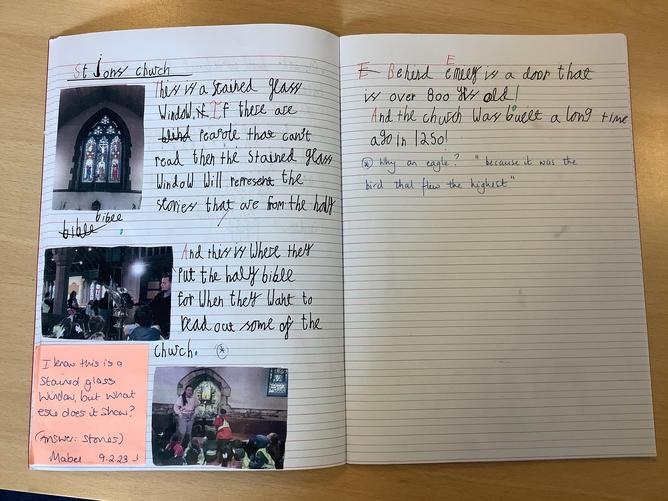 St Jons church
This is a stained glass
Window, if If these are
blind pearote that can't
read then the stained glass
Window Will represent the
stories that are from the holy
bible bibee
And this is Where they
Put the holy bible
for When they Want to
read out some of the
church. *
I know this is a
Stained glass
Window, but what
else does it show?
(Answer: stories)
Mabel 9.2.23
E Behind E emeley is a door that
is over 800 yrs old!
And the church Was built a long time
ago in 1250!
* Why an eagle? "because it was the
bird that flew the highest"